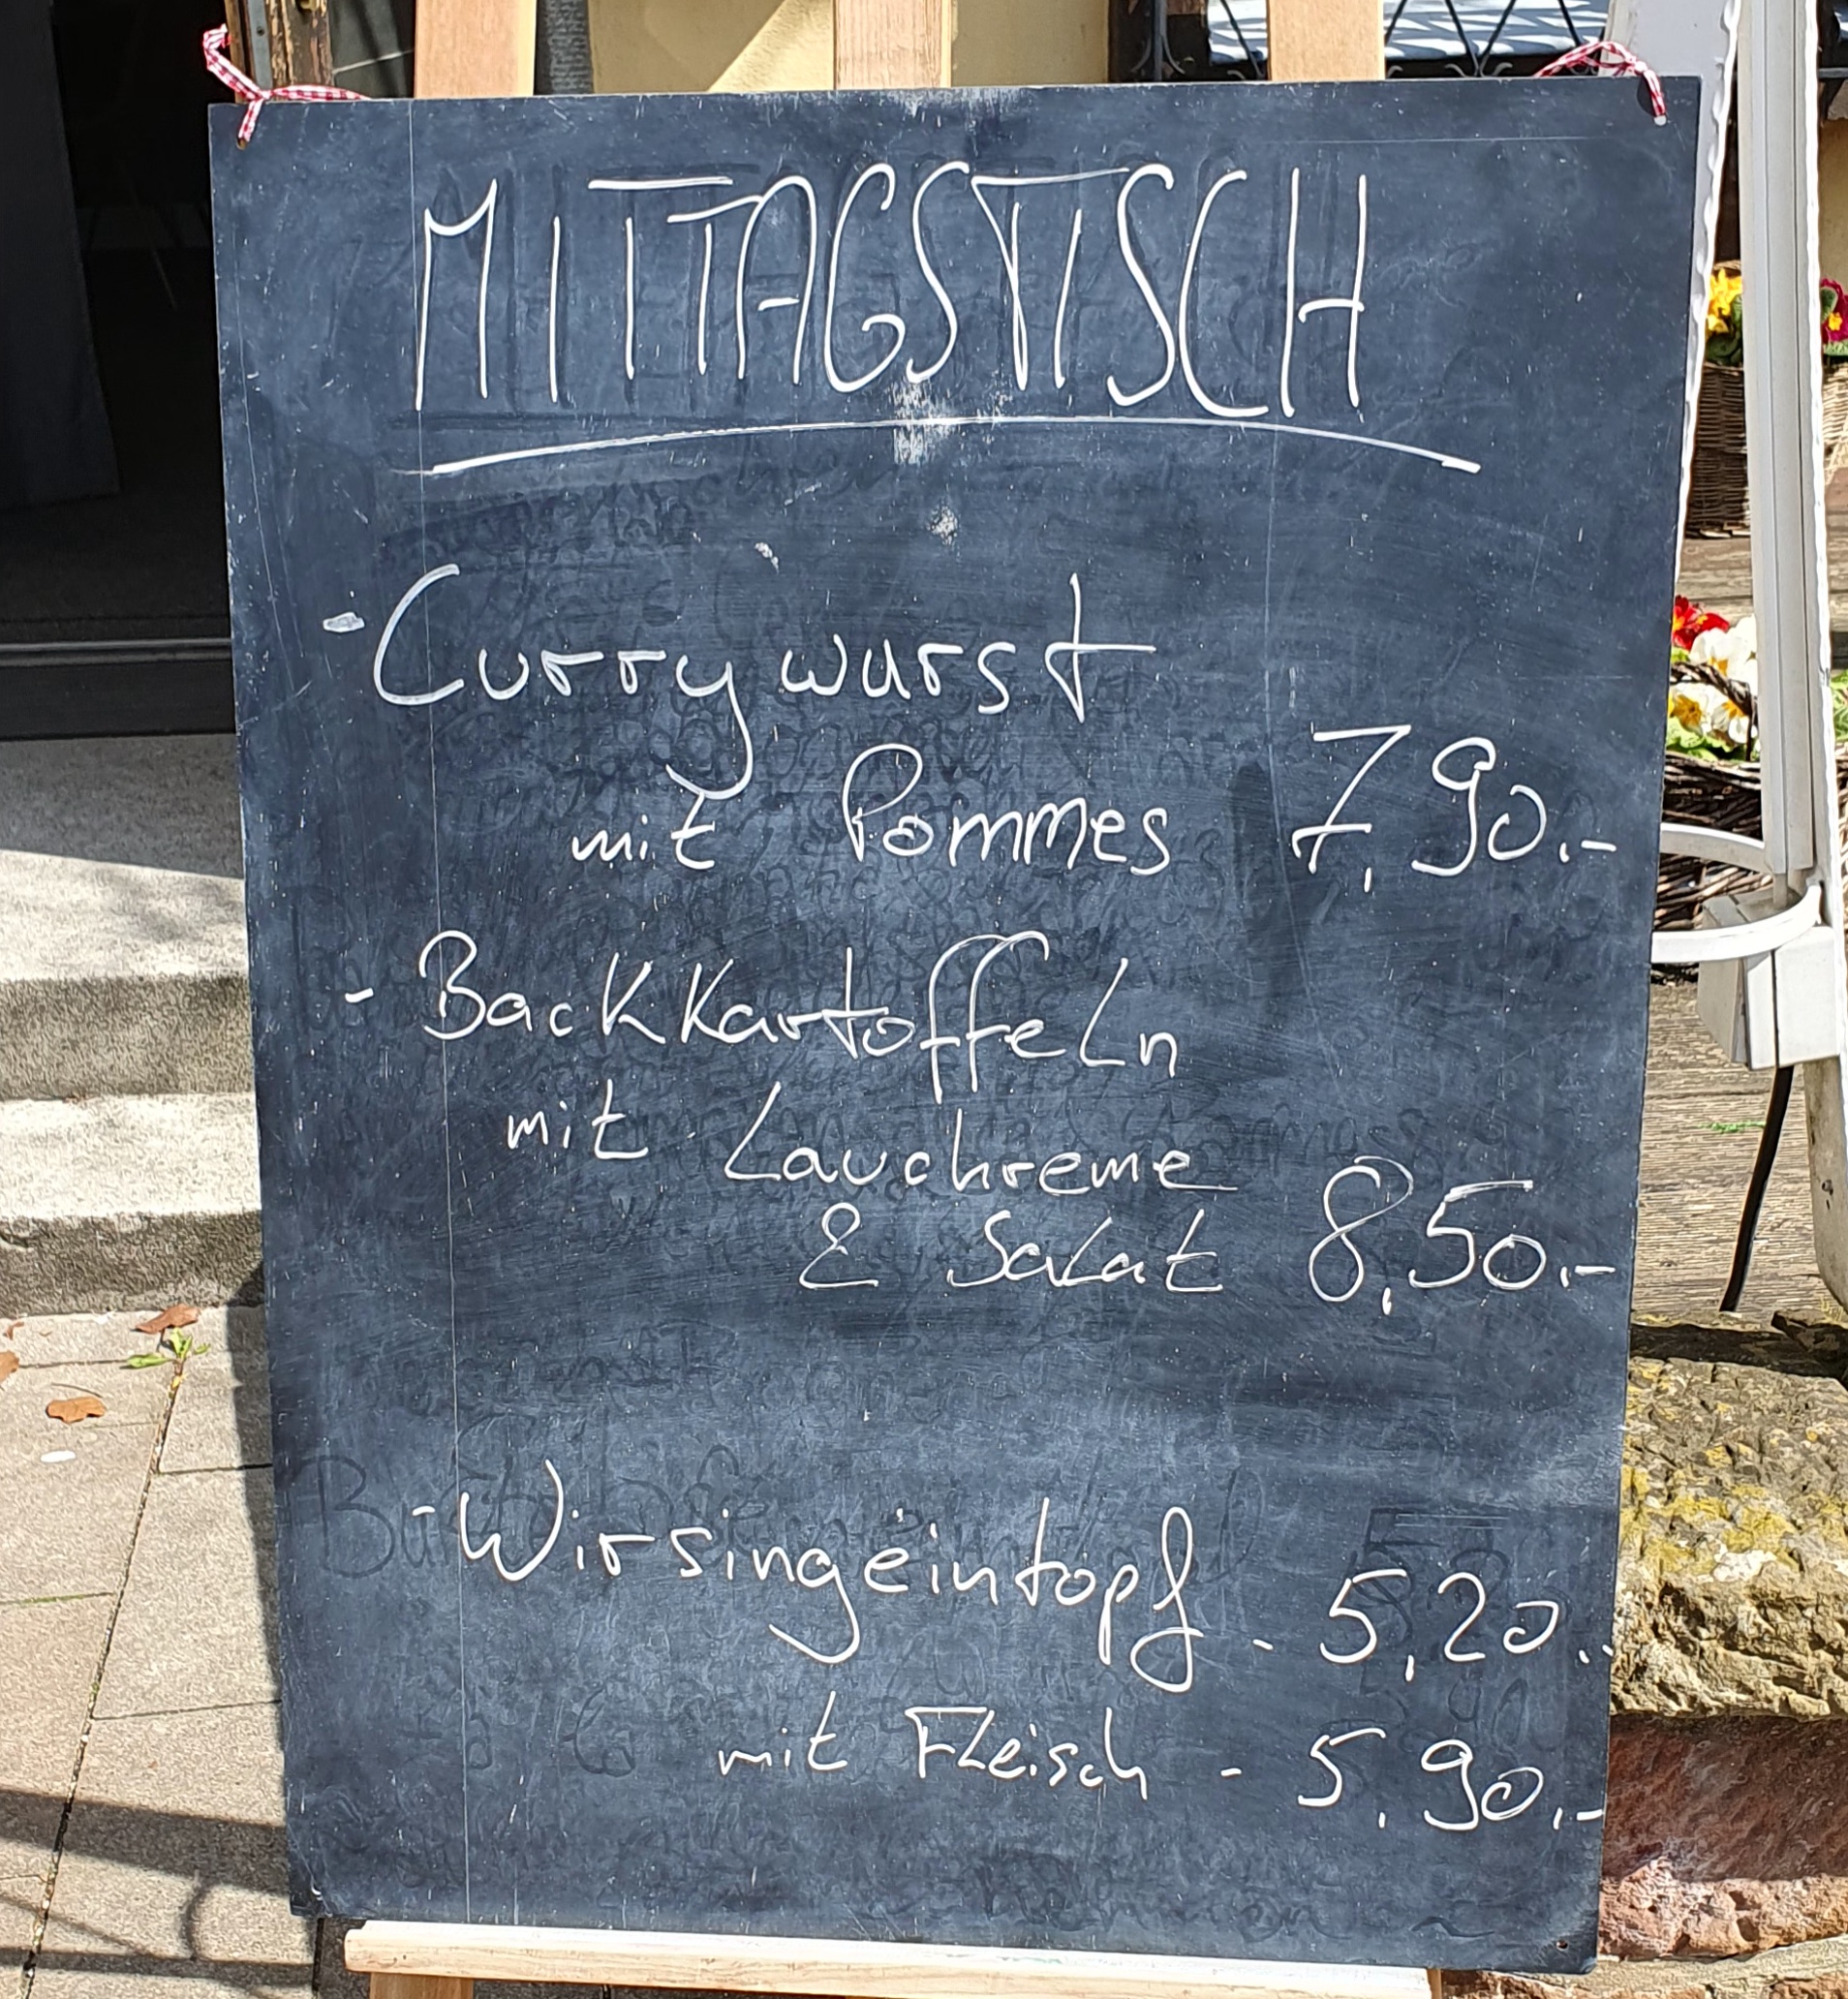 MITTAGSTISCH
- Currywurst
mit Pommes 7,90.-
- Backkartoffeln
mit Lauchreme
& Salat 8,50.-
- Wirsingeintopf - 5,20.-
mit Fleisch - 5,90.-